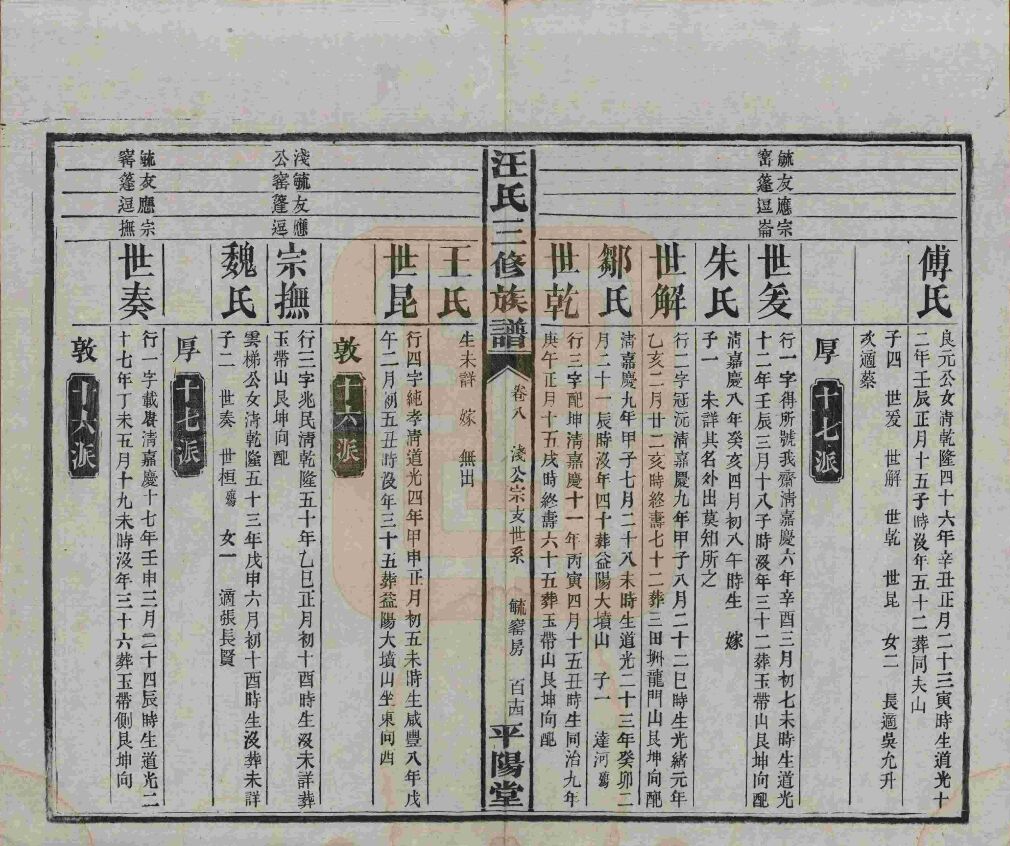 傅氏
良元公女清乾隆四十六年辛丑正月二十三寅時生道光十
二年壬辰正月十五子時沒年五十二葬同夫山
子四 世爰 世解 世乾 世昆 女二 長適吳允升
次適蔡
厚 十七派
毓友應宗
窰蓬逗崙
世爰
行一字得所號我齋清嘉慶六年辛酉三月初七未時生道光
十二年壬辰三月十八子時沒年三十二葬玉帶山艮坤向配
朱氏
清嘉慶八年癸亥四月初八午時生 嫁
子一 未詳其名外出莫知所之
世解
行二字冠沅清嘉慶九年甲子八月二十二巳時生光緒元年
乙亥二月廿二亥時終壽七十二葬三田㘭龍門山艮坤向配
鄒氏
清嘉慶九年甲子七月二十八未時生道光二十三年癸卯二
月二十一辰時沒年四十葬益陽大墳山 子一 達河殤
世乾
行三字配坤清嘉慶十一年丙寅四月十五丑時生同治九年
庚午正月十五戌時終壽六十五葬玉帶山艮坤向配
汪氏三修族譜 卷八 淺公宗支世系 毓窰房 百四 平陽堂
王氏
生未詳 嫁 無出
世昆
行四字純孝清道光四年甲申正月初五未時生咸豐八年戊
午二月初五丑時沒年三十五葬益陽大墳山坐東向酉
敦 十六派
淺毓友應
公窰蓬逗
宗撫
行三字兆民清乾隆五十年乙巳正月初十酉時生沒未詳葬
玉帶山艮坤向配
魏氏
雲梯公女清乾隆五十三年戊申六月初十酉時生沒葬未詳
子二 世奏 世桓殤 女一 適張長賢
厚 十七派
毓友應宗
窰蓬逗撫
世奏
行一字載賡清嘉慶十七年壬申三月二十四辰時生道光二
十七年丁未五月十九未時沒年三十六葬玉帶側艮坤向
敦 十六派